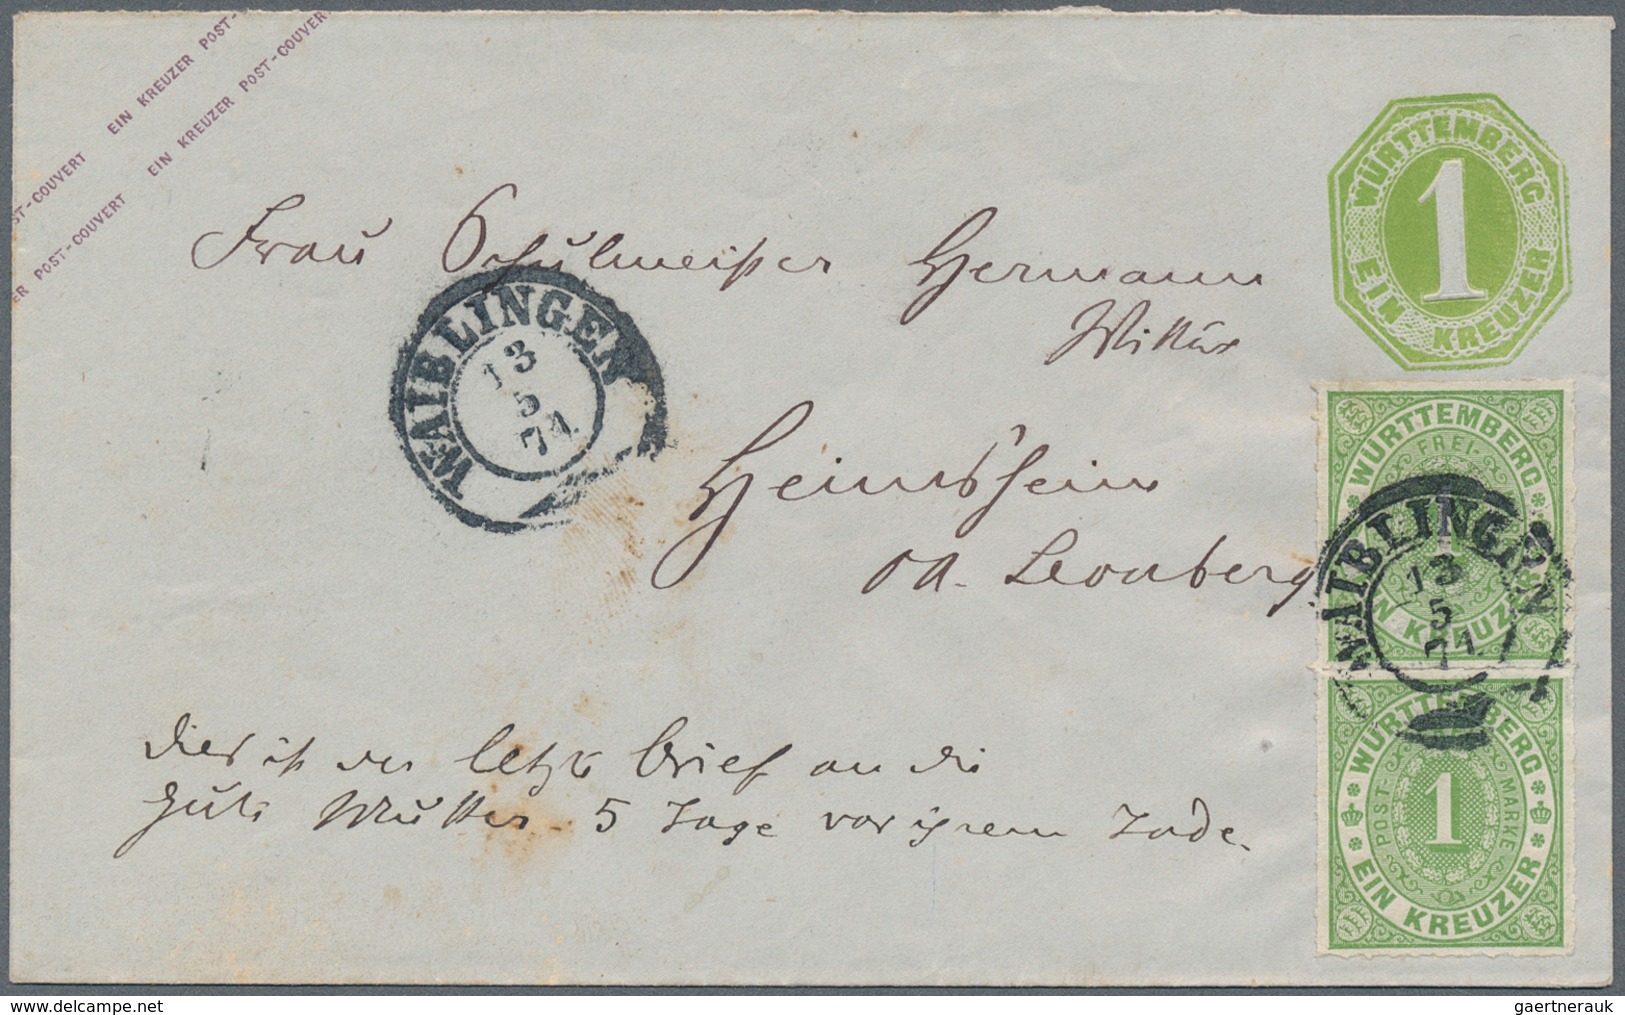 EIN KREUZER POST-
ST-COUVERT EIN KREUZER POST-COUVER
ER POST-COUVERT
WÜRTTEMBERG
1
EIN KREUZER
Frau Schulmeister Hermann
Heimsheim
OA. Leonberg
WAIBLINGEN
13
5
71.
WÜRTTEMBERG
FREI-
1
EIN KREUZER
WAIBLINGEN
13
5
71.
WÜRTTEMBERG
POST- 1 MARKE
EIN KREUZER
dies ist der letzte Brief an die
gute Mutter 5 Tage vor ihrem Tode.
www.delcampe.net
gaertnerauk